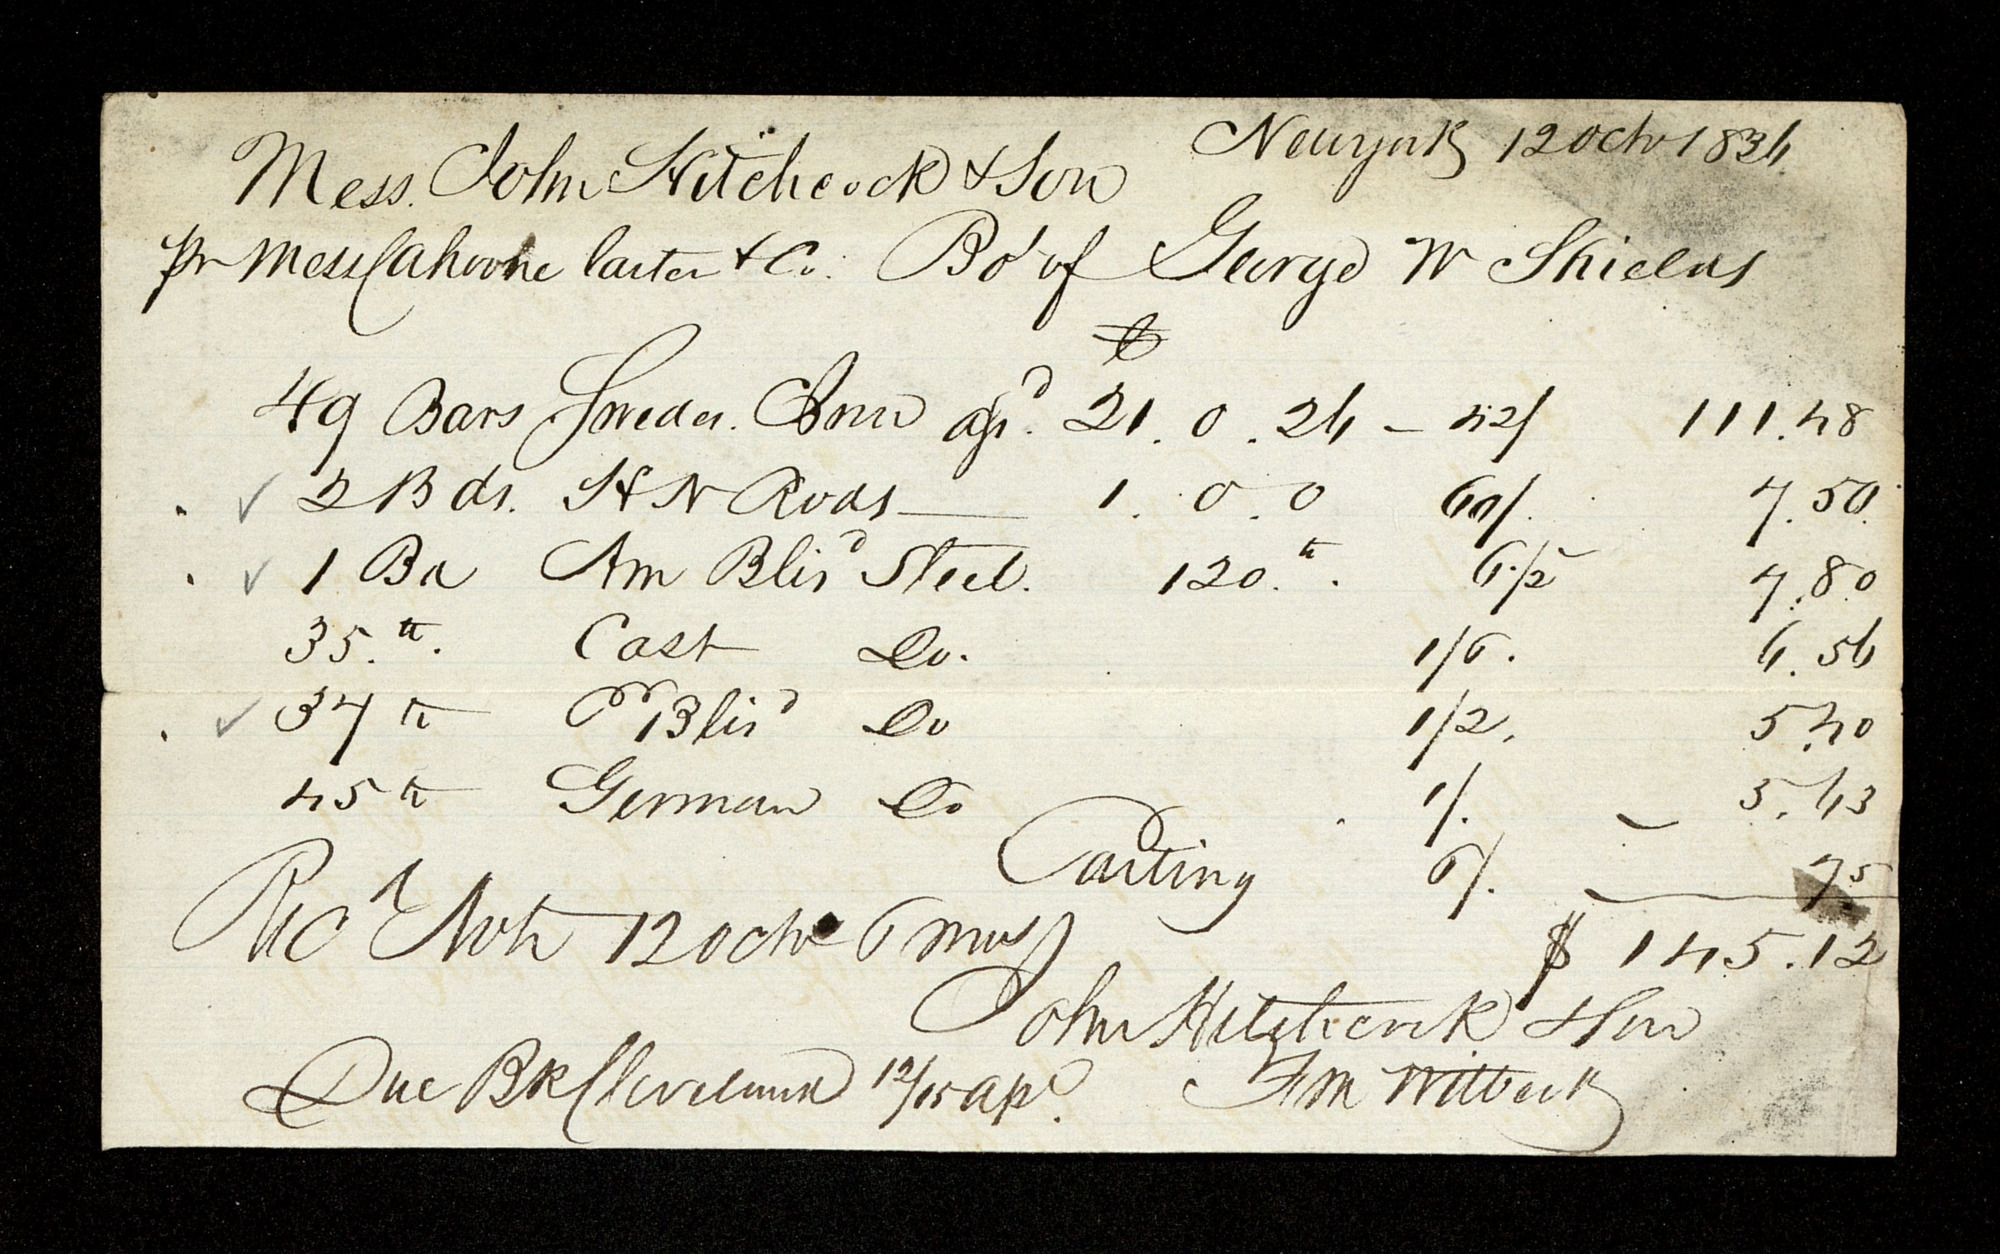 Newyork 12 Octr 1836
Mess. John Hitchcock & Son
pr Mess Cahoone Carter & Co. Bot of George W Shields
℔
49 Bars Swedes. Iron 21.0.26 – 42/ 111.48
2 Bds. H N Rods — 1.0.0 60/. 7.50
1 Ba Am Blisd Steel. 120.lb. 6 1/2 7.80
35.lb. Cast Do. 1/6. 6.56
37 lb Blisd Do 1/2. 5.40
45 lb German Do 1/. 5.63
Carting 6/. 75
Recd Note 12 Octr 6 mos $ 145.12
John Hitchcock & Son
Due Bk Cleveland 12/15 apl. F M Wilbeck